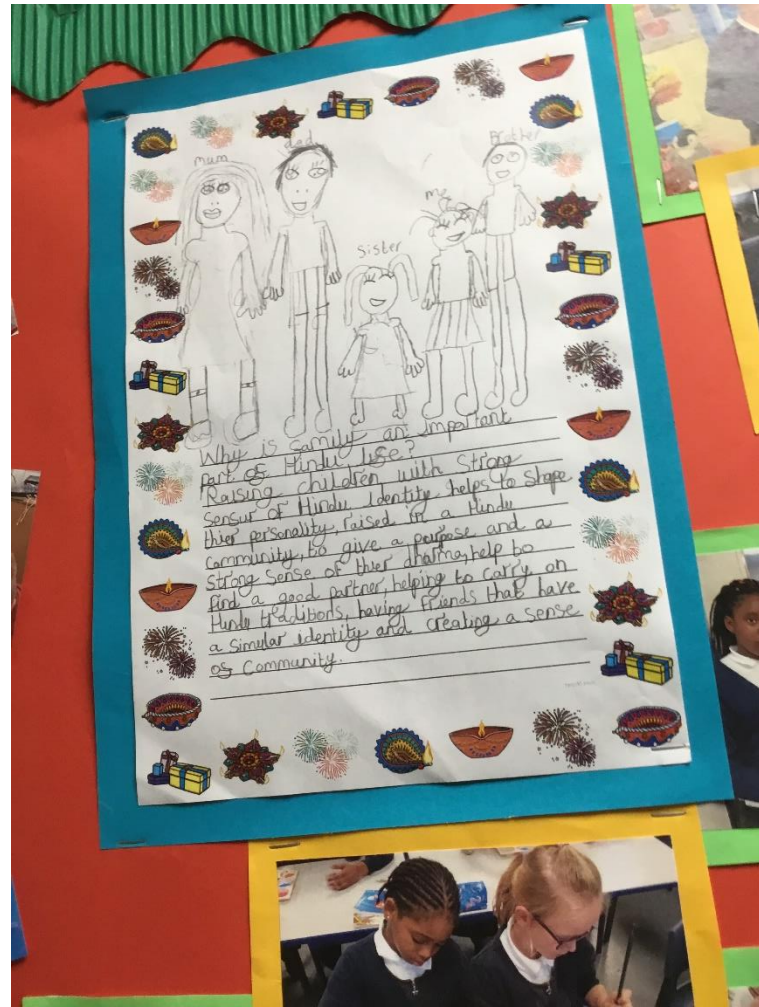 Mum
dad
Brother
me
Sister
Why is family an important
part of Hindu life?
Raising children with Strong
Sensur of Hindu Identity helps to shape
thier personality, raised in a Hindu
Community, to give a purpose and a
Strong Sense of thier dharma, help to
find a good partner, helping to carry on
Hindu traditions, having friends that have
a simular identity and creating a sense
of Community.